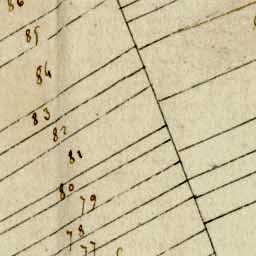 86
85
84
83
82
81
80
79
78
77